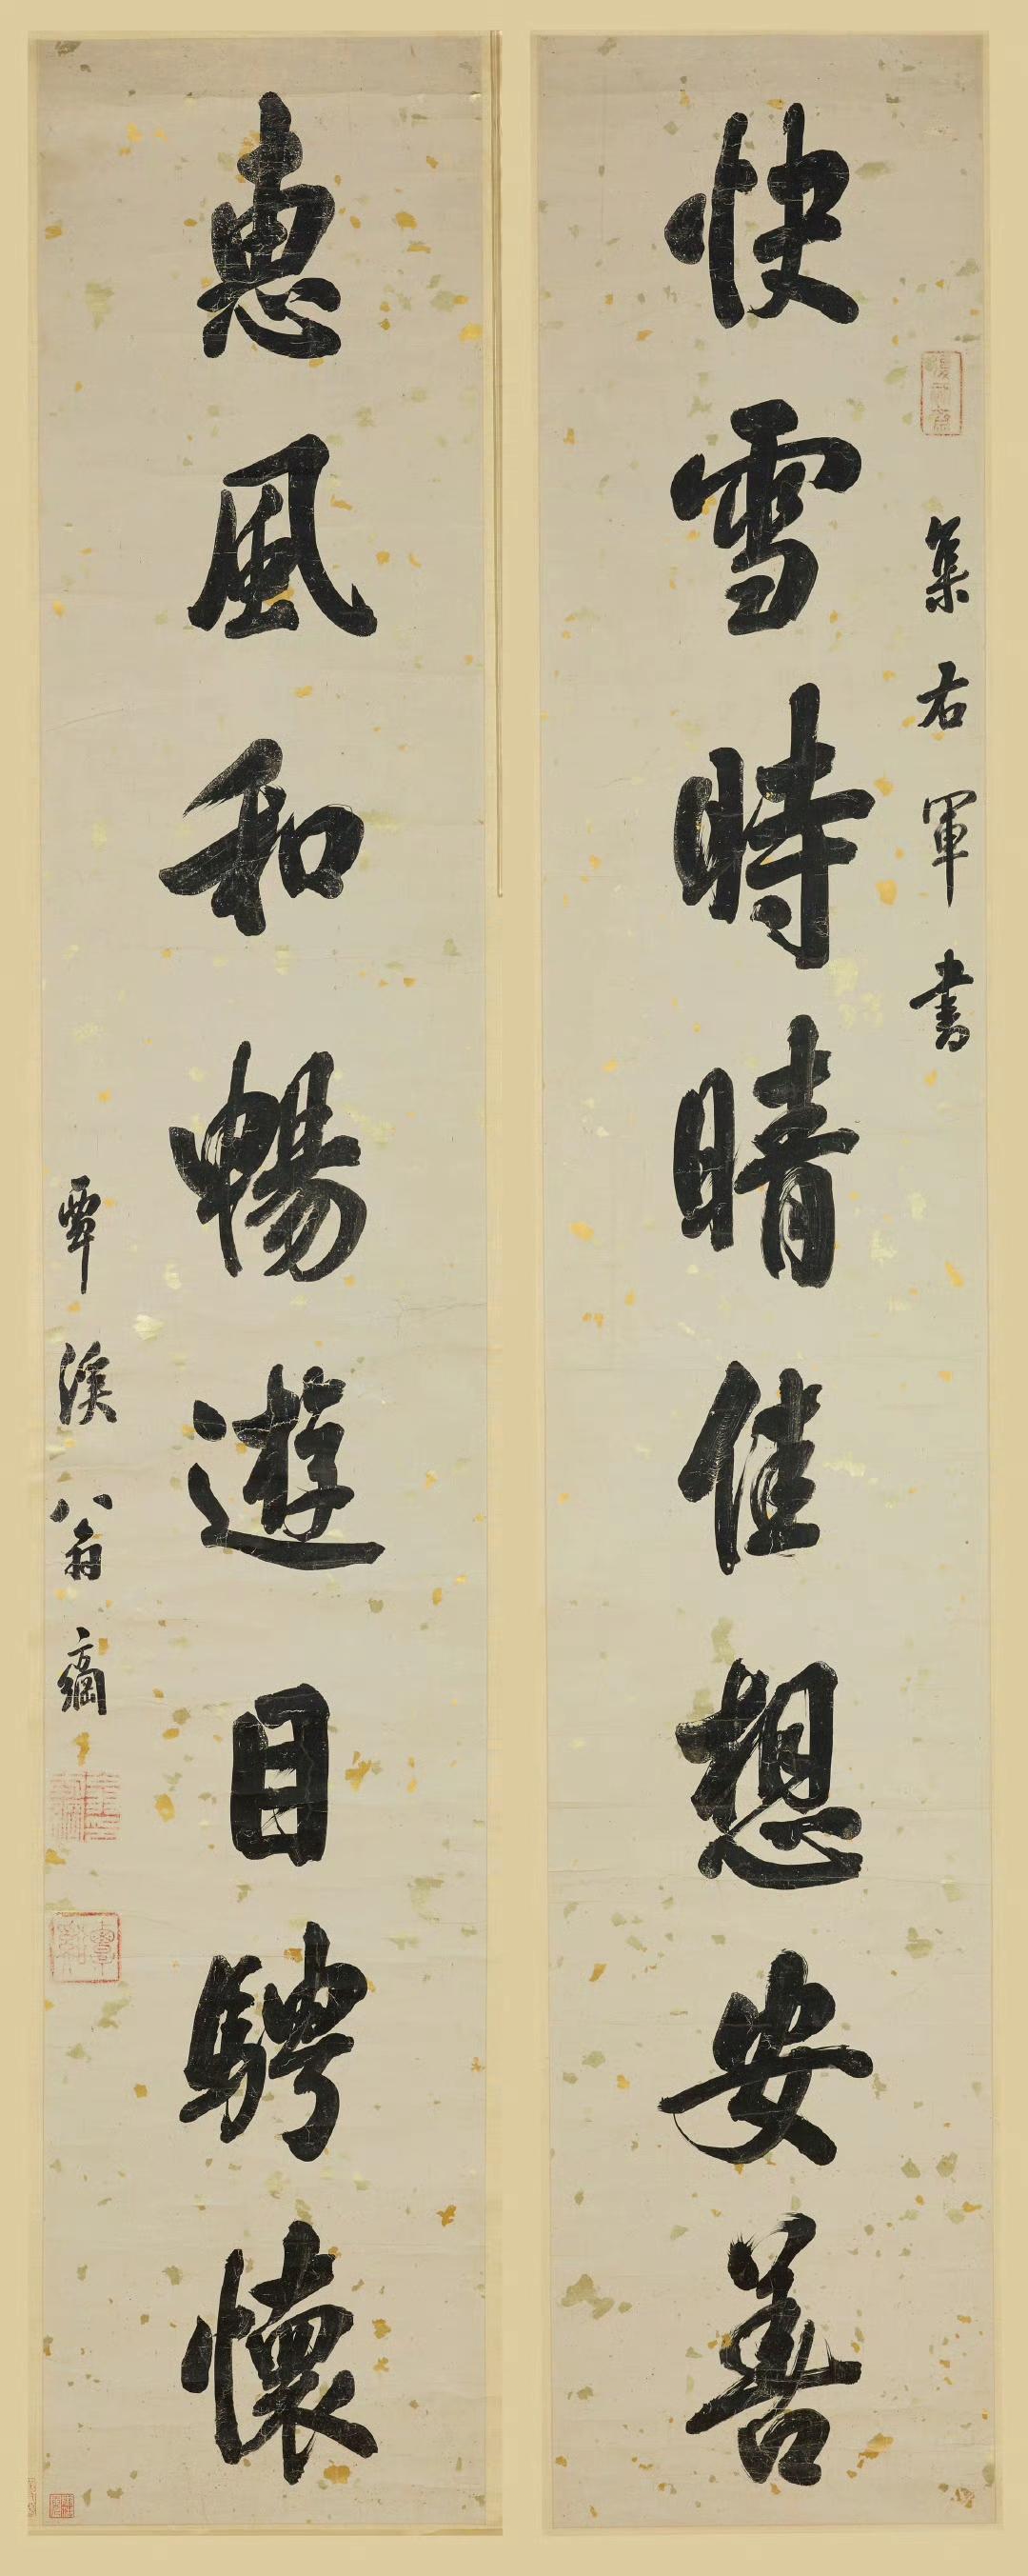 集右軍書
快雪時晴佳想安善
惠風和暢遊目騁懷
覃溪翁方綱